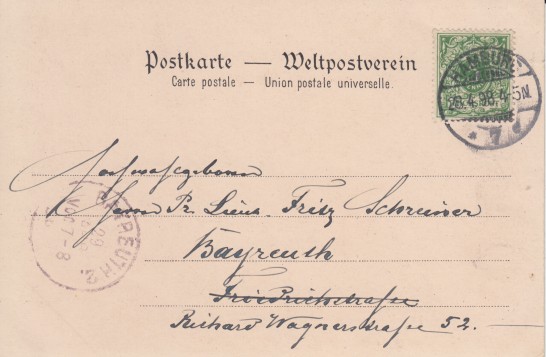 Postkarte — Weltpostverein
Carte postale — Union postale universelle.
HAMBURG
4-5N
* 7
Hochwohlgeboren
Herrn Pr. Lieut. Fritz
Bayreuth
Friedrichstraße
Richard Wagnerstraße 52.
BAYREUTH 2.
7-8